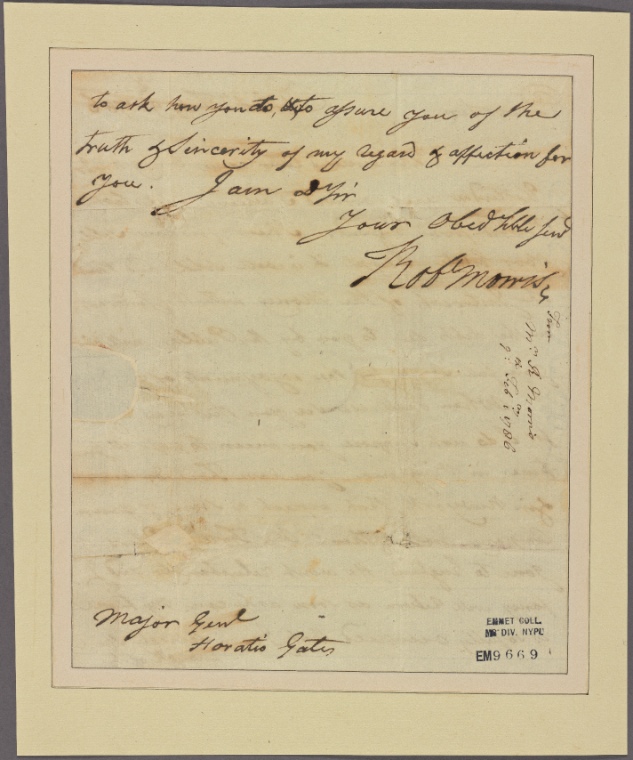 to ask how you do, & to assure you of the
truth & Sincerity of my regard & affection for
you. I am D Sir
Your Obed hble Serv
Robt Morris
From
Mr. R Morris
9th Feb: 1786
Major Genl
Horatio Gates
EMMET COLL.
MS DIV. NYPL
EM9669